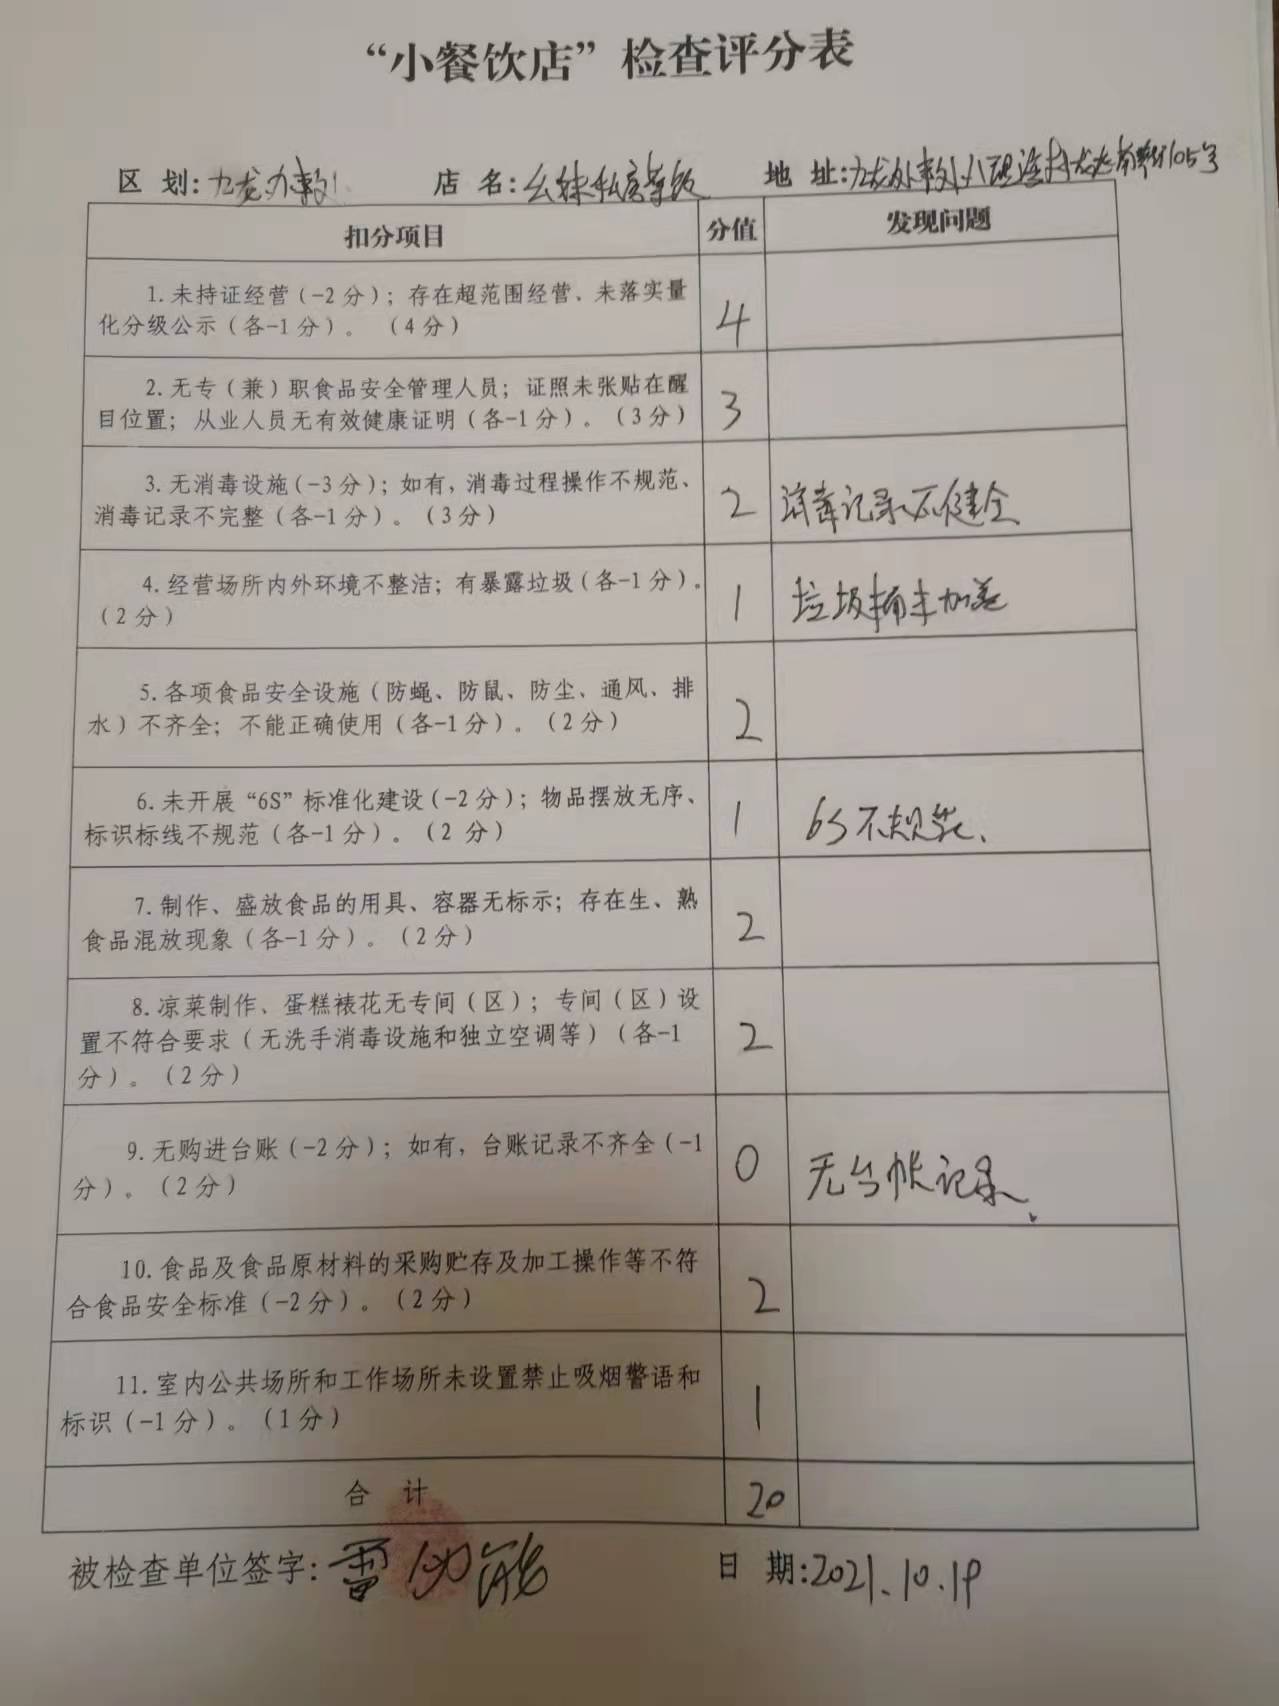 “小餐饮店”检查评分表
区 划: 九龙办事处 店 名: 幺妹私房 地 址: 九龙办事处 105号
扣分项目 分值 发现问题
1. 未持证经营(-2分); 存在超范围经营、未落实量
化分级公示(各-1分)。 (4分)
4
2. 无专(兼)职食品安全管理人员; 证照未张贴在醒
目位置; 从业人员无有效健康证明(各-1分)。(3分)
3
3. 无消毒设施(-3分); 如有, 消毒过程操作不规范、
消毒记录不完整(各-1分)。(3分)
2 消毒记录不健全
4. 经营场所内外环境不整洁; 有暴露垃圾(各-1分)。
(2分)
1 垃圾桶未加盖
5. 各项食品安全设施(防蝇、防鼠、防尘、通风、排
水)不齐全; 不能正确使用(各-1分)。(2分)
2
6. 未开展“6S”标准化建设(-2分); 物品摆放无序、
标识标线不规范(各-1分)。(2 分)
1 6S不规范、
7. 制作、盛放食品的用具、容器无标示; 存在生、熟
食品混放现象(各-1分)。(2分)
2
8. 凉菜制作、蛋糕裱花无专间(区); 专间(区)设
置不符合要求(无洗手消毒设施和独立空调等)(各-1
分)。(2分)
2
9. 无购进台账(-2分); 如有, 台账记录不齐全(-1
分)。(2分)
0 无台帐记录、
10. 食品及食品原材料的采购贮存及加工操作等不符
合食品安全标准(-2分)。(2分)
2
11. 室内公共场所和工作场所未设置禁止吸烟警语和
标识(-1分)。(1分)
1
合 计 20
被检查单位签字: 日 期: 2021.10.19